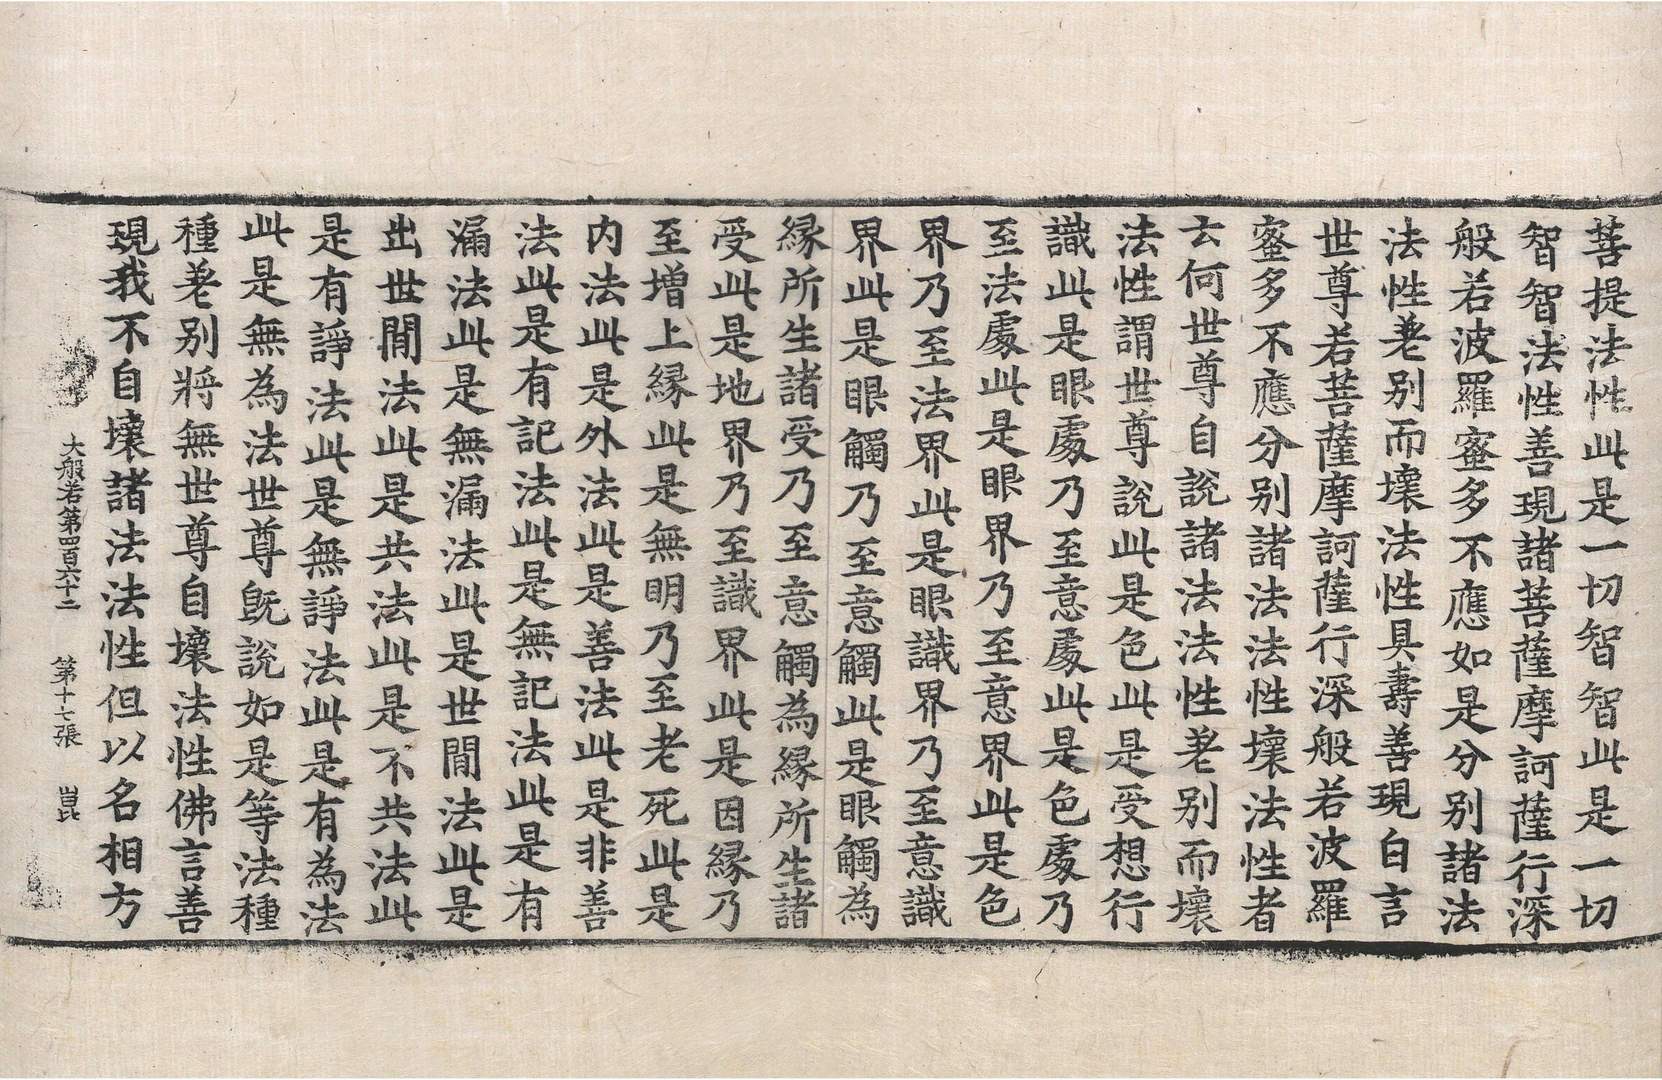 菩提法性此是一切智智此是一切
智智法性善現諸菩薩摩訶薩行深
般若波羅蜜多不應如是分别諸法
法性差别而壞法性具壽善現白言
世尊若菩薩摩訶薩行深般若波羅
蜜多不應分别諸法法性壞法性者
云何世尊自說諸法法性差别而壞
法性謂世尊說此是色此是受想行
識此是眼處乃至意處此是色處乃
至法處此是眼界乃至意界此是色
界乃至法界此是眼識界乃至意識
界此是眼觸乃至意觸此是眼觸為
縁所生諸受乃至意觸為縁所生諸
受此是地界乃至識界此是因縁乃
至增上縁此是無明乃至老死此是
内法此是外法此是善法此是非善
法此是有記法此是無記法此是有
漏法此是無漏法此是世間法此是
出世間法此是共法此是不共法此
是有諍法此是無諍法此是有為法
此是無為法世尊旣說如是等法種
種差别將無世尊自壞法性佛言善
現我不自壞諸法法性但以名相方
大般若第四百六十二 第十七張 崑